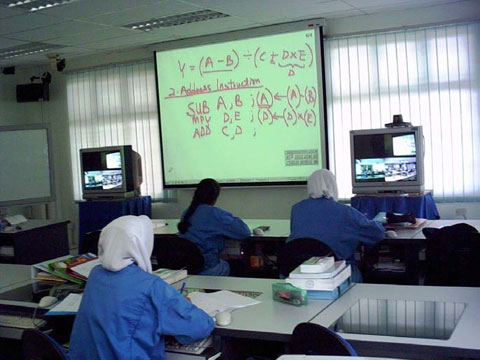 Y = (A - B) ÷ (C + D × E)
D
2-Address Instruction
SUB A, B ; (A) ← (A) - (B)
MPY D, E ; (D) ← (D) × (E)
ADD C, D ;